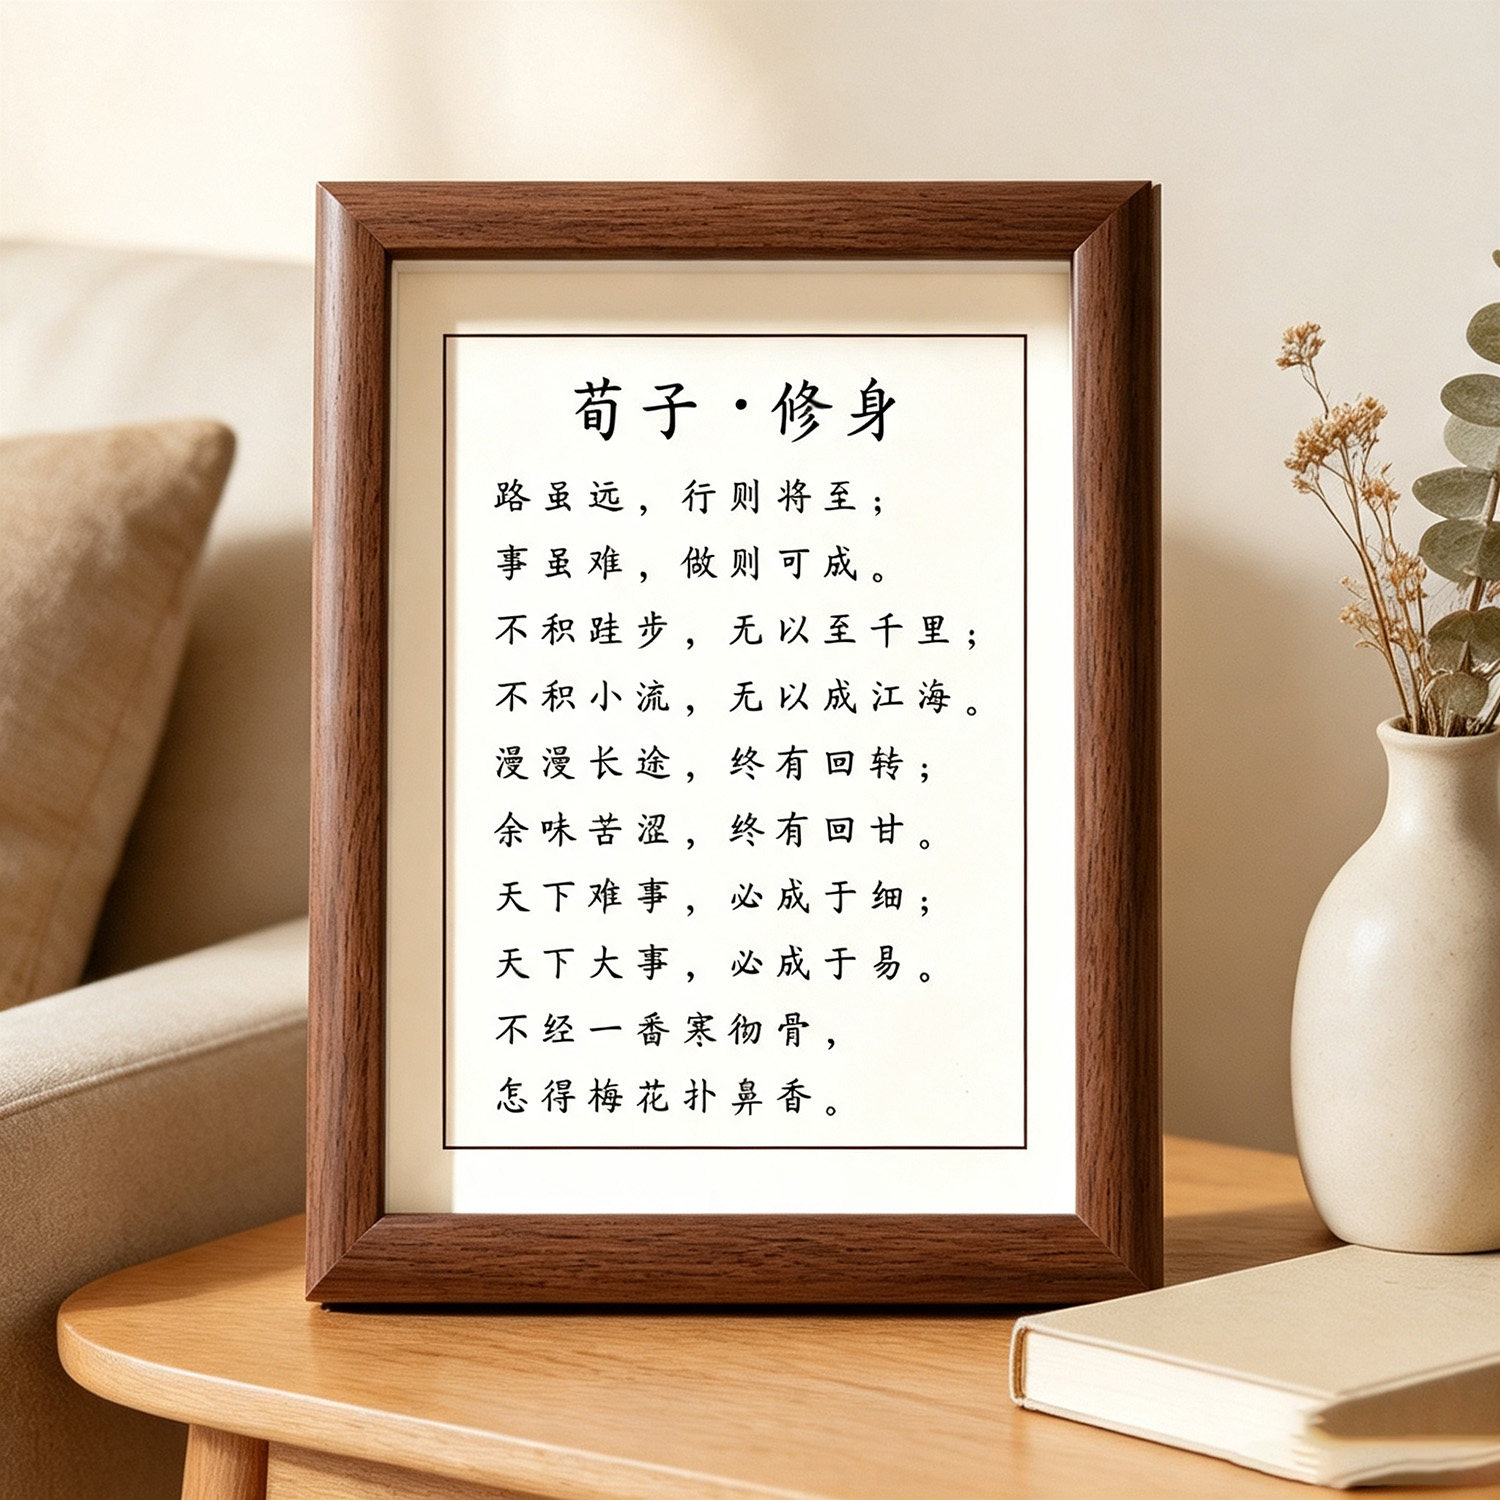 荀子·修身
路虽远，行则将至；
事虽难，做则可成。
不积跬步，无以至千里；
不积小流，无以成江海。
漫漫长途，终有回转；
余味苦涩，终有回甘。
天下难事，必成于细；
天下大事，必成于易。
不经一番寒彻骨，
怎得梅花扑鼻香。